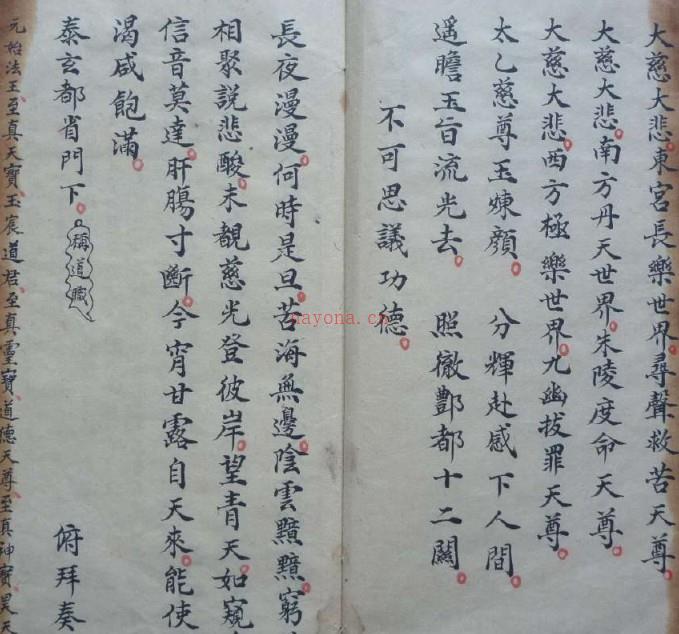 大慈大悲東宮長樂世界尋聲救苦天尊
大慈大悲南方丹天世界朱陵度命天尊
大慈大悲西方極樂世界九幽拔罪天尊
太乙慈尊玉煉顏 分輝赴感下人間
遥瞻玉旨流光去 照徹酆都十二關
不可思議功德
長夜漫漫何時是旦苦海無邊陰雲黯黯窮
相聚說悲酸未覩慈光登彼岸望青天如窺
信音莫達肝腸寸斷今宵甘露自天來能使
渴咸飽滿
泰玄都省門下 稱道職 俯拜奏
元始法王至真天寶玉宸道君至真靈寶道德天尊至真神寶昊天
nayona.cn